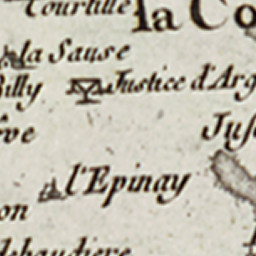 Courtille
la Co
la Sause
Billy
Justice d'Arg
ve
Jus
l'Epinay
on
debaudiere